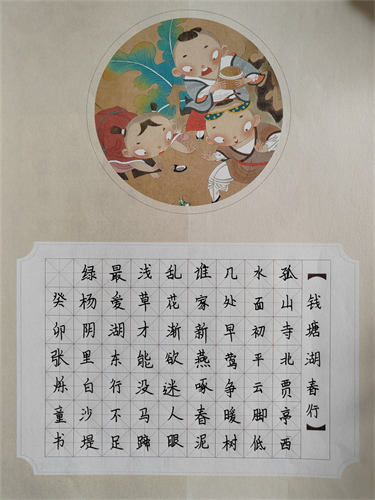 【钱塘湖春行】
孤山寺北贾亭西
水面初平云脚低
几处早莺争暖树
谁家新燕啄春泥
乱花渐欲迷人眼
浅草才能没马蹄
最爱湖东行不足
绿杨阴里白沙堤
癸卯张烁童书